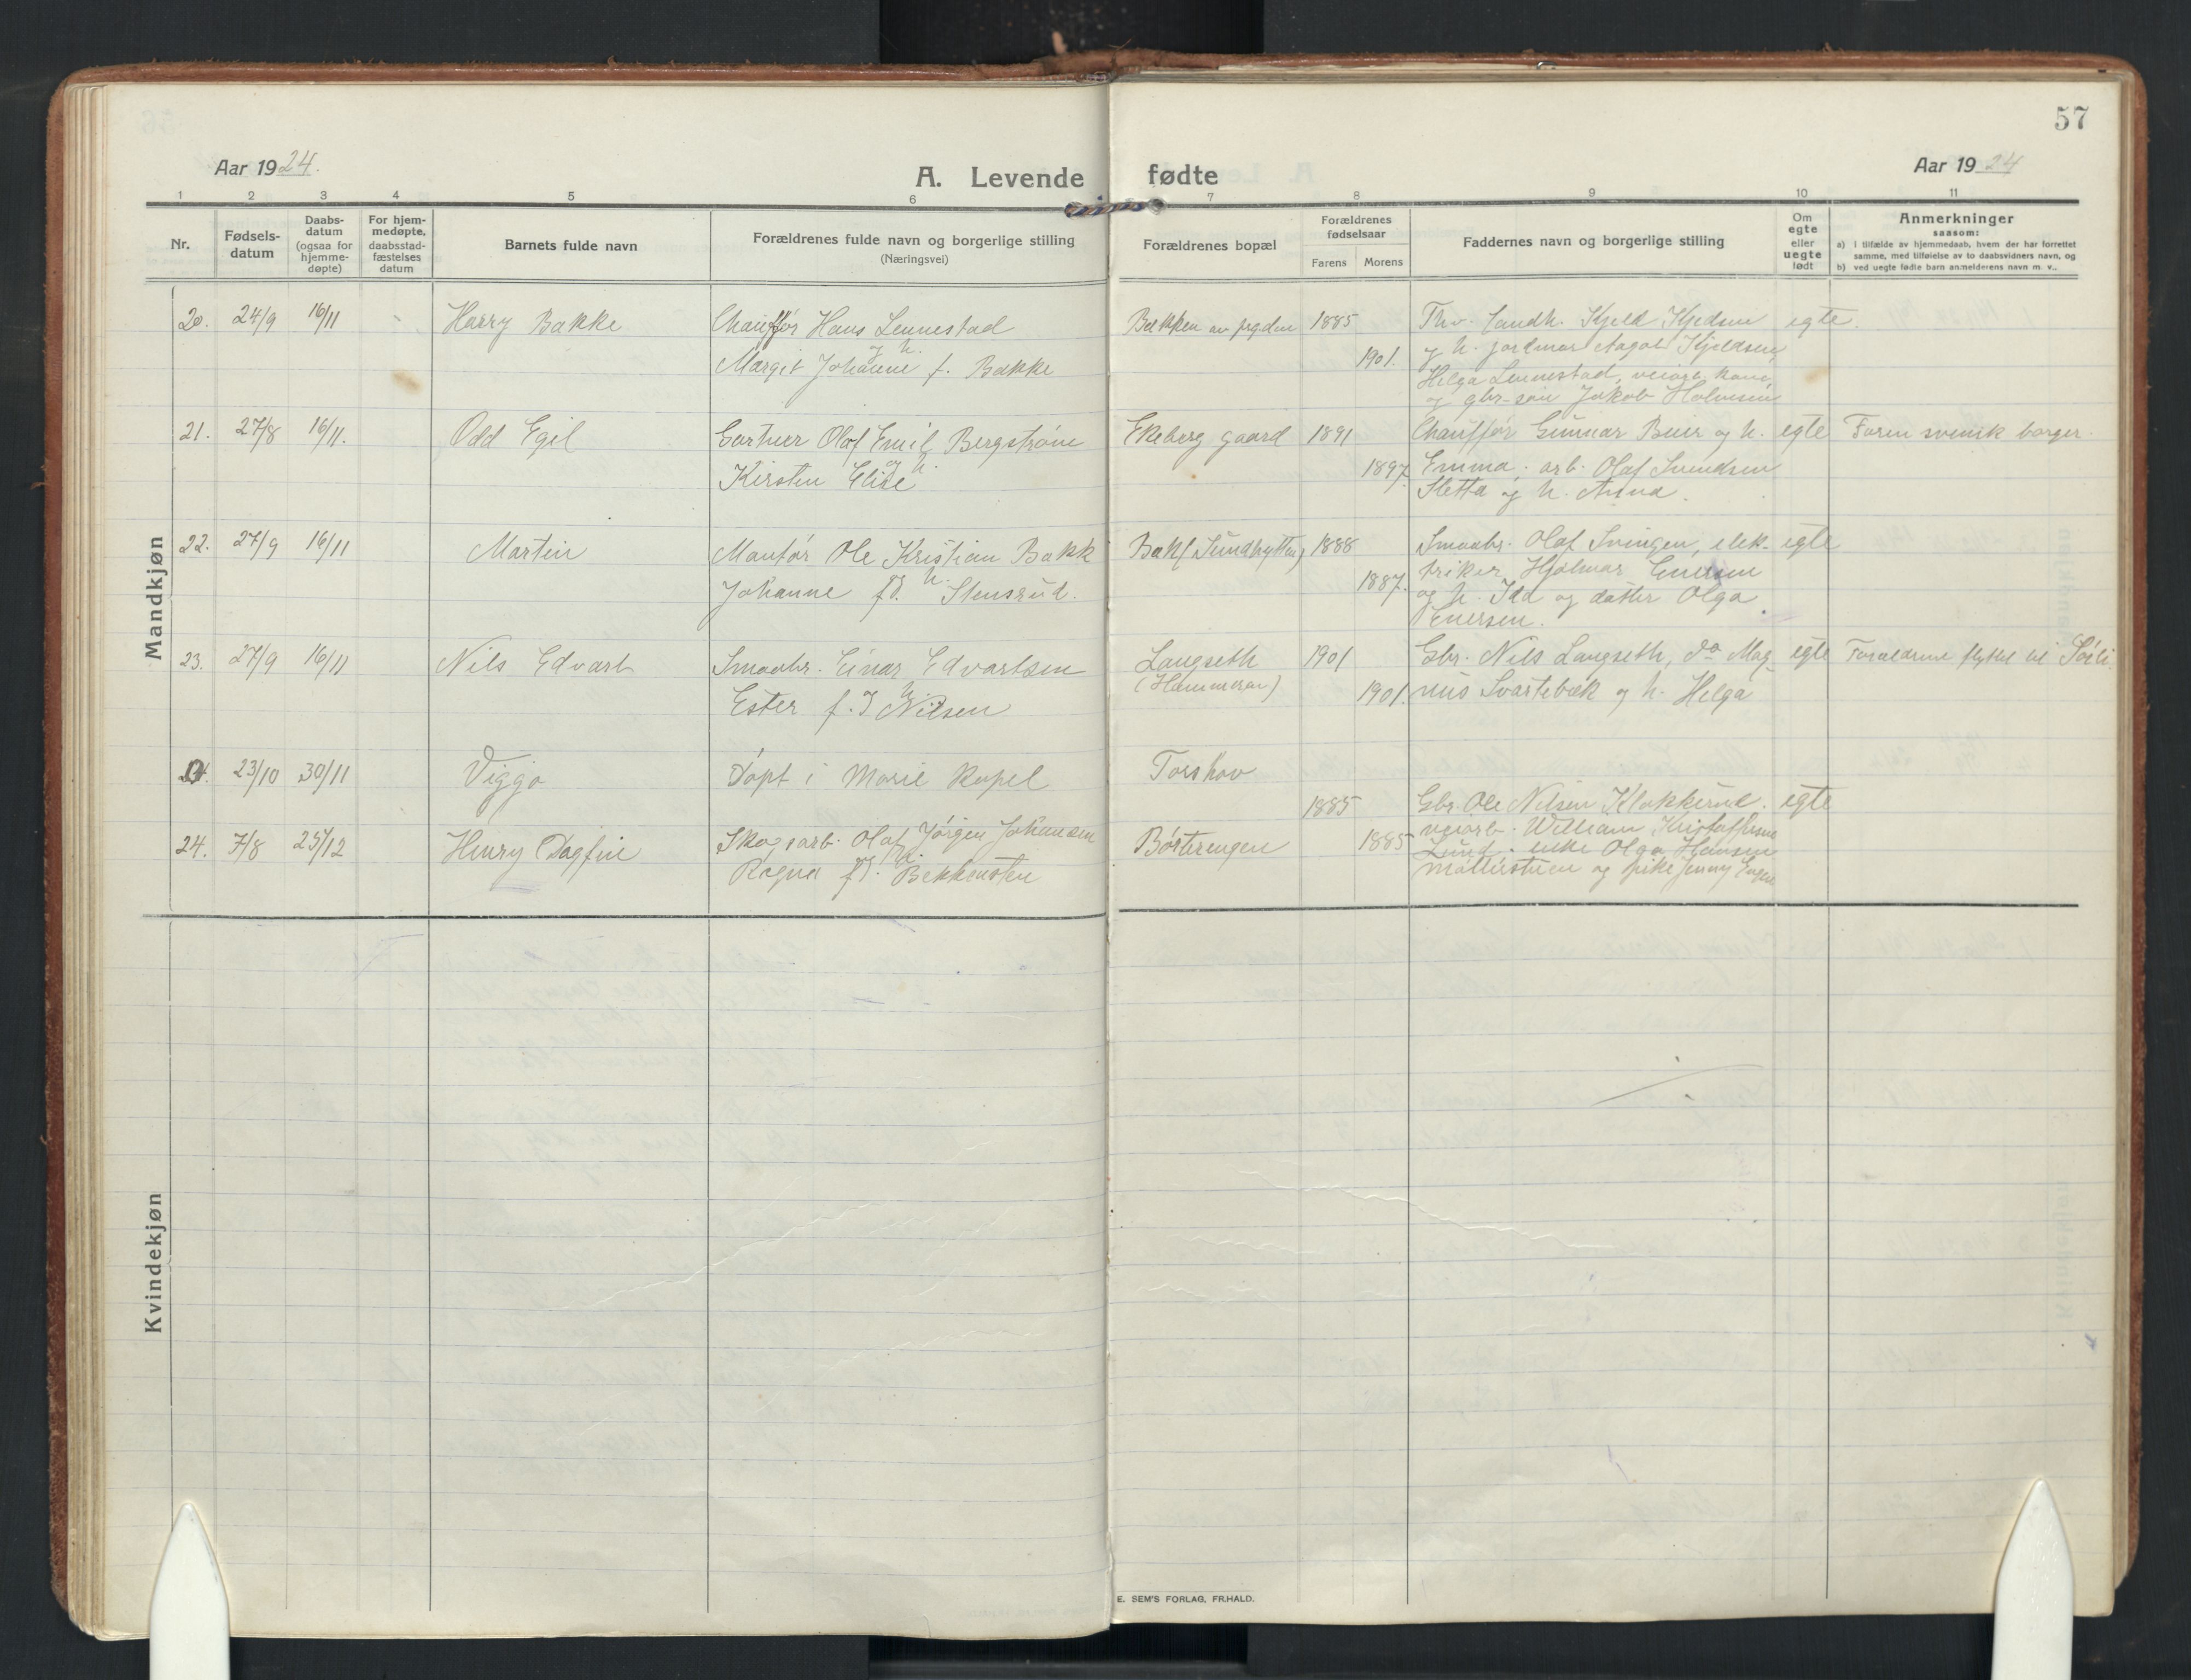 57
Aar 1924.
A. Levende fødte
Aar 1924
1 2 3 4 5 6 7 8 9 10 11
Nr.
Fødsels-
datum
Daabs-
datum
(ogsaa for
hjemme-
døpte)
For hjem-
medøpte,
daabsstad-
fæstelses
datum
Barnets fulde navn
Forældrenes fulde navn og borgerlige stilling
(Næringsvei)
Forældrenes bopæl
Forældrenes
fødselsaar
Farens Morens
Faddernes navn og borgerlige stilling
Om
egte
eller
uegte
født
Anmerkninger
saasom:
a) i tilfælde av hjemmedaab, hvem der har forrettet
samme, med tilføielse av to daabsvidners navn, og
b) ved uegte fødte barn anmelderens navn m. v..
Mandkjøn
20. 24/9 16/11 Harry Bakke Chauffør Hans Lennestad Bakken 1885 Thv. Landh. Kjeld Kjeldsen egte.
og h.
Margit Johanne f. Bakke 1901. og h. jordmor Aagot Kjeldsen,
Helga Lennestad, kone,
og gbr-søn Jakob Halvorsen
21. 27/8 16/11. Odd Egil Gartner Olaf Emil Bergstrøm Ekeberg gaard 1891 Chauffør Gunnar Beier og h. egte Faren svensk borger.
og h.
Kirsten Elise 1897. Emma. arb. Olaf Svendsen
Sletta og h. Anna.
22. 27/9 16/11 Martin Montør Ole Kristian Bakk Bakk (Sundhytten) 1888 Smaabr. Olaf Svingen, elek- egte
h.
Johanne f. Stensrud. 1887. triker Hjalmar Enersen
og h. Ida og datter Olga
Enersen.
23. 27/9 16/11 Nils Edvart Smaabr. Einar Edvartsen Langseth 1901 Gbr. Nils Langseth, do Mag- egte Forældrene flyttet til Sørli.
h. (Hammeren)
Ester f. Nilsen 1901. nus Svartebæk og h. Helga
24. 23/10 30/11 Viggo Døpt i Marie Kapel Torshov
24. 7/8 25/12 Henry Dagfin Skogsarb. Olaf Jørgen Johansen Børterengen 1885 Gbr. Ole Nilsen Klokkerud. egte
h.
Ragna f. Bekkensten 1885 veiarb. William Kristoffersen
Lund. enke Olga Hansen
Møllerstuen og pike Jenny Engen
Kvindekjøn
E. SEM'S FORLAG, FR.HALD.